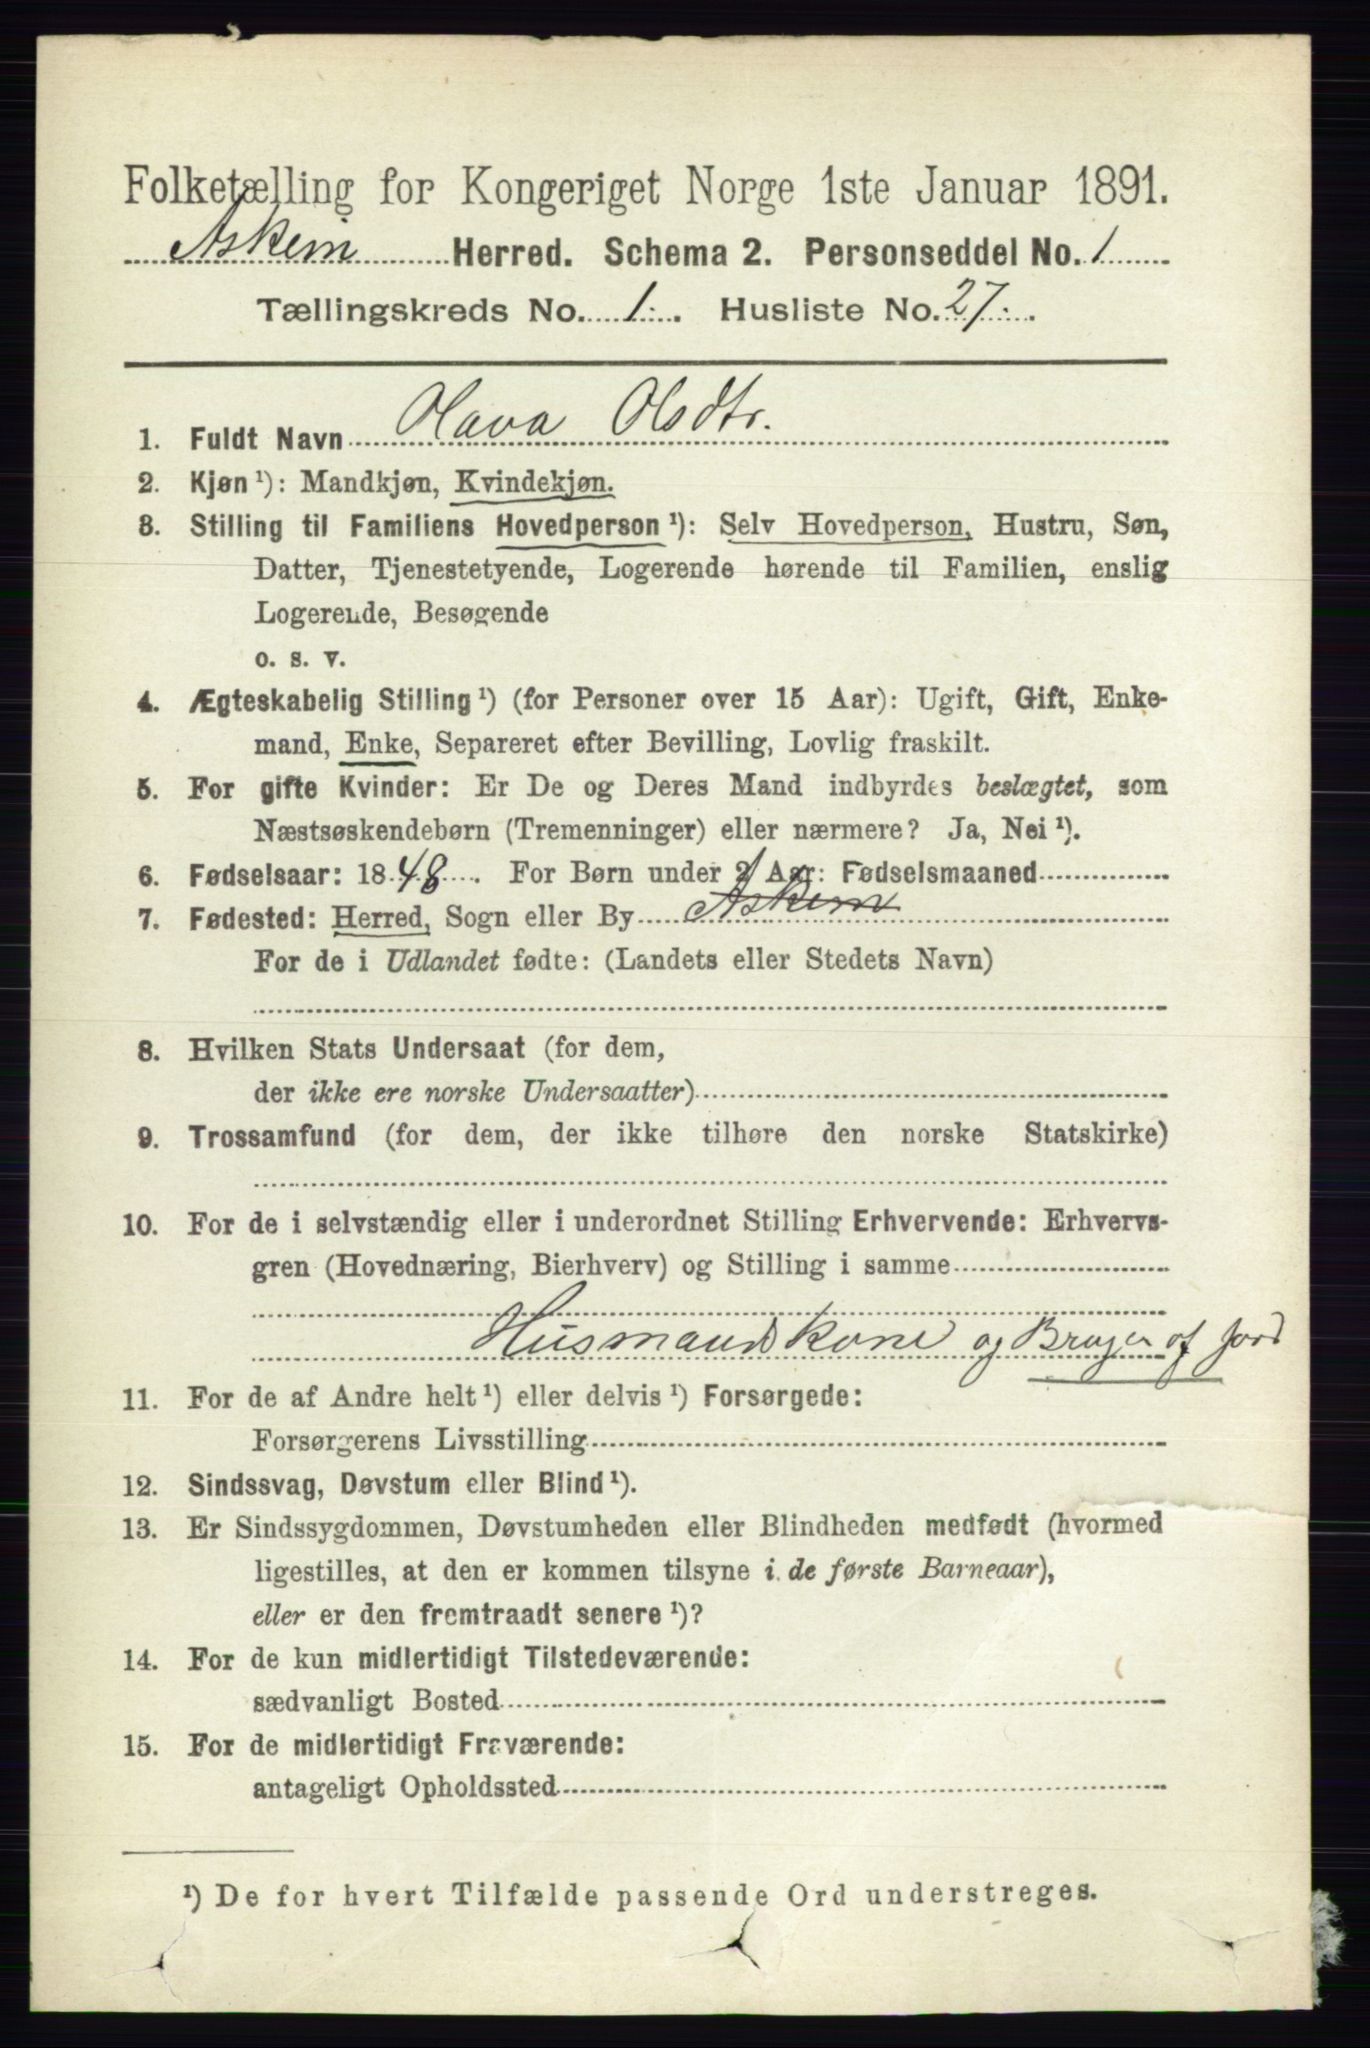 Folketælling for Kongeriget Norge 1ste Januar 1891.
Askim Herred. Schema 2. Personseddel No. 1
Tællingskreds No. 1. Husliste No. 27.
1. Fuldt Navn Olava Olsdtr.
2. Kjøn ¹): Mandkjøn, Kvindekjøn.
3. Stilling til Familiens Hovedperson ¹): Selv Hovedperson, Hustru, Søn,
Datter, Tjenestetyende, Logerende hørende til Familien, enslig
Logerende, Besøgende
o. s. v.
4. Ægteskabelig Stilling ¹) (for Personer over 15 Aar): Ugift, Gift, Enke-
mand, Enke, Separeret efter Bevilling, Lovlig fraskilt.
5. For gifte Kvinder: Er De og Deres Mand indbyrdes beslægtet, som
Næstsøskendebørn (Tremenninger) eller nærmere? Ja, Nei ¹).
6. Fødselsaar: 1848. For Børn under 2 Aar: Fødselsmaaned
7. Fødested: Herred, Sogn eller By Askim
For de i Udlandet fødte: (Landets eller Stedets Navn)
8. Hvilken Stats Undersaat (for dem,
der ikke ere norske Undersaatter)
9. Trossamfund (for dem, der ikke tilhøre den norske Statskirke)
10. For de i selvstændig eller i underordnet Stilling Erhvervende: Erhvervs-
gren (Hovednæring, Bierhverv) og Stilling i samme
Husmandskone og Bruger af Jord
11. For de af Andre helt ¹) eller delvis ¹) Forsørgede:
Forsørgerens Livsstilling
12. Sindssvag, Døvstum eller Blind ¹).
13. Er Sindssygdommen, Døvstumheden eller Blindheden medfødt (hvormed
ligestilles, at den er kommen tilsyne i de første Barneaar),
eller er den fremtraadt senere ¹)?
14. For de kun midlertidigt Tilstedeværende:
sædvanligt Bosted
15. For de midlertidigt Fraværende:
antageligt Opholdssted
¹) De for hvert Tilfælde passende Ord understreges.